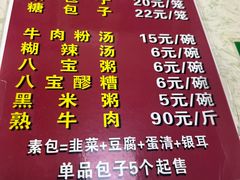 糖包子 20元/笼
22元/笼
牛肉粉汤 15元/碗
糊辣汤 6元/碗
八宝粥 6元/碗
八宝醪糟 6元/碗
黑米粥 5元/碗
熟牛肉 90元/斤
素包=韭菜+豆腐+蛋清+银耳
单品包子5个起售